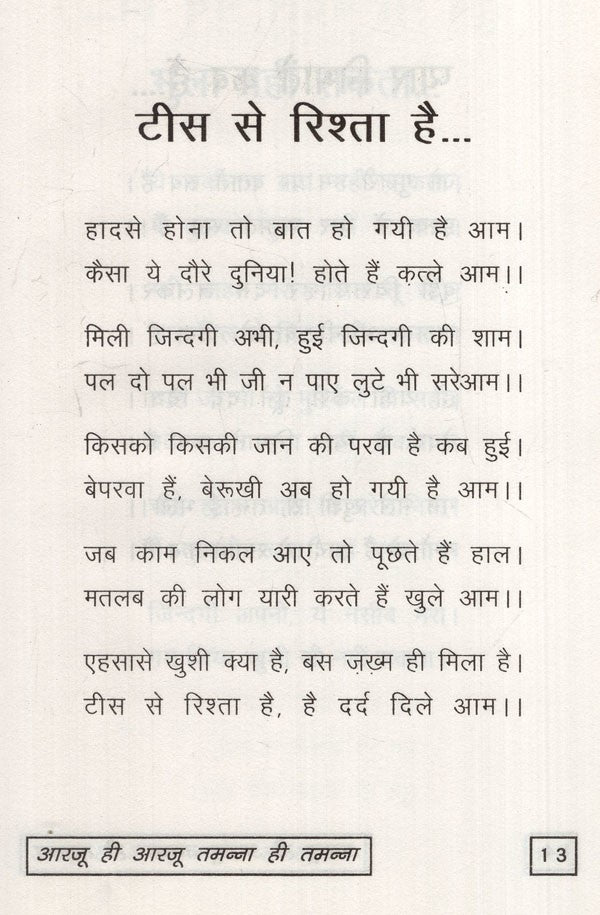 टीस से रिश्ता है...
हादसे होना तो बात हो गयी है आम।
कैसा ये दौरे दुनिया! होते हैं क़त्ले आम।।
मिली जिन्दगी अभी, हुई जिन्दगी की शाम।
पल दो पल भी जी न पाए लुटे भी सरेआम।।
किसको किसकी जान की परवा है कब हुई।
बेपरवा हैं, बेरूखी अब हो गयी है आम।।
जब काम निकल आए तो पूछते हैं हाल।
मतलब की लोग यारी करते हैं खुले आम।।
एहसासे खुशी क्या है, बस ज़ख़्म ही मिला है।
टीस से रिश्ता है, है दर्द दिले आम।।
आरजू ही आरजू तमन्ना ही तमन्ना
13